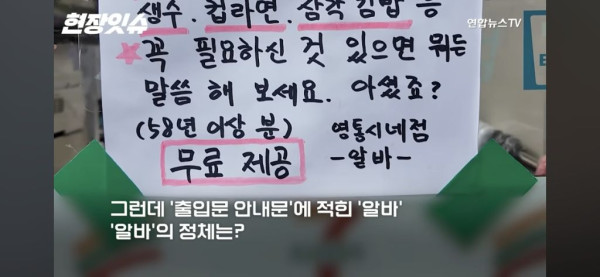 현장잇슈
연합뉴스TV
생수. 컵라면. 삼각 김밥 등
★꼭 필요하신 것 있으면 뭐든
말씀 해 보세요. 아셨죠?
(58년 이상 분) 영통시네점
무료 제공 -알바-
그런데 '출입문 안내문'에 적힌 '알바'
'알바'의 정체는?